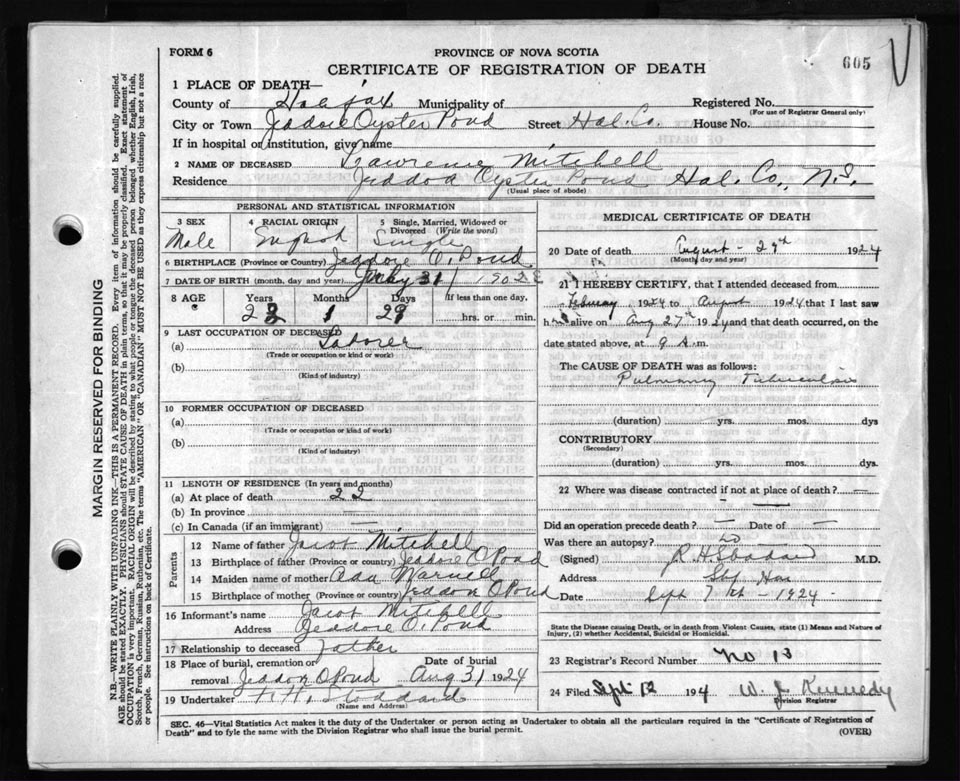 FORM 6
PROVINCE OF NOVA SCOTIA
605
CERTIFICATE OF REGISTRATION OF DEATH
1 PLACE OF DEATH—
County of Halifax Municipality of Registered No.
(For use of Registrar General only)
City or Town Jeddore Oyster Pond Street Hal. Co. House No.
If in hospital or institution, give name
2 NAME OF DECEASED Lawrence Mitchell
Residence Oyster Pond Hal. Co., N.S.
(Usual place of abode)
PERSONAL AND STATISTICAL INFORMATION
3 SEX 4 RACIAL ORIGIN 5 Single, Married, Widowed or Divorced (Write the word)
Male English Single
6 BIRTHPLACE (Province or Country) Jeddore O. Pond
7 DATE OF BIRTH (month, day and year) 31 1902
8 AGE Years Months Days If less than one day,
1 29 hrs. or min.
9 LAST OCCUPATION OF DECEASED
(a) Laborer
(Trade or occupation or kind or work)
(b)
(Kind of industry)
10 FORMER OCCUPATION OF DECEASED
(a)
(Trade or occupation or kind of work)
(b)
(Kind of industry)
11 LENGTH OF RESIDENCE (In years and months)
(a) At place of death 22
(b) In province —
(c) In Canada (if an immigrant) —
Parents
12 Name of father Jacob Mitchell
13 Birthplace of father (Province or country) Jeddore O Pond
14 Maiden name of mother Ada
15 Birthplace of mother (Province or country) O Pond
16 Informant's name Jacob Mitchell
Address Jeddore O. Pond
17 Relationship to deceased father
18 Place of burial, cremation or removal O Pond Date of burial Aug 31 1924
19 Undertaker Stoddard
(Name and Address)
MEDICAL CERTIFICATE OF DEATH
20 Date of death August - 29th 1924
(Month, day and year)
21 I HEREBY CERTIFY, that I attended deceased from
February 1924 to August 1924 that I last saw
h alive on Aug 27th 1924 and that death occurred, on the
date stated above, at 9 A.m.
The CAUSE OF DEATH was as follows:
Pulmonary Tuberculosis
(duration) yrs. mos. dys
CONTRIBUTORY
(Secondary)
(duration) yrs. mos. dys.
22 Where was disease contracted if not at place of death? —
Did an operation precede death? — Date of —
Was there an autopsy? no
(Signed) R. H. M.D.
Address
Date Sept 7th - 1924 -
State the Disease causing Death, or in death from Violent Causes, state (1) Means and Nature of
Injury, (2) whether Accidental, Suicidal or Homicidal.
23 Registrar's Record Number No 13
24 Filed Sept 12 194 W. J. Kennedy
Division Registrar
SEC. 46—Vital Statistics Act makes it the duty of the Undertaker or person acting as Undertaker to obtain all the particulars required in the "Certificate of Registration of
Death" and to fyle the same with the Division Registrar who shall issue the burial permit.
(OVER)
MARGIN RESERVED FOR BINDING
N.B.—WRITE PLAINLY WITH UNFADING INK—THIS IS A PERMANENT RECORD. Every item of information should be carefully supplied.
AGE should be stated EXACTLY. PHYSICIANS should STATE CAUSE OF DEATH in plain terms, so that it may be properly classified. Exact statement of
OCCUPATION is very important. RACIAL ORIGIN will be described by stating to what people or tongue the deceased person belonged whether English, Irish,
Scotch, French, German, Russian, Ruthenian, etc. The terms "AMERICAN" OR "CANADIAN" MUST NOT BE USED as they express citizenship but not a race
or people. See instructions on back of Certificate.